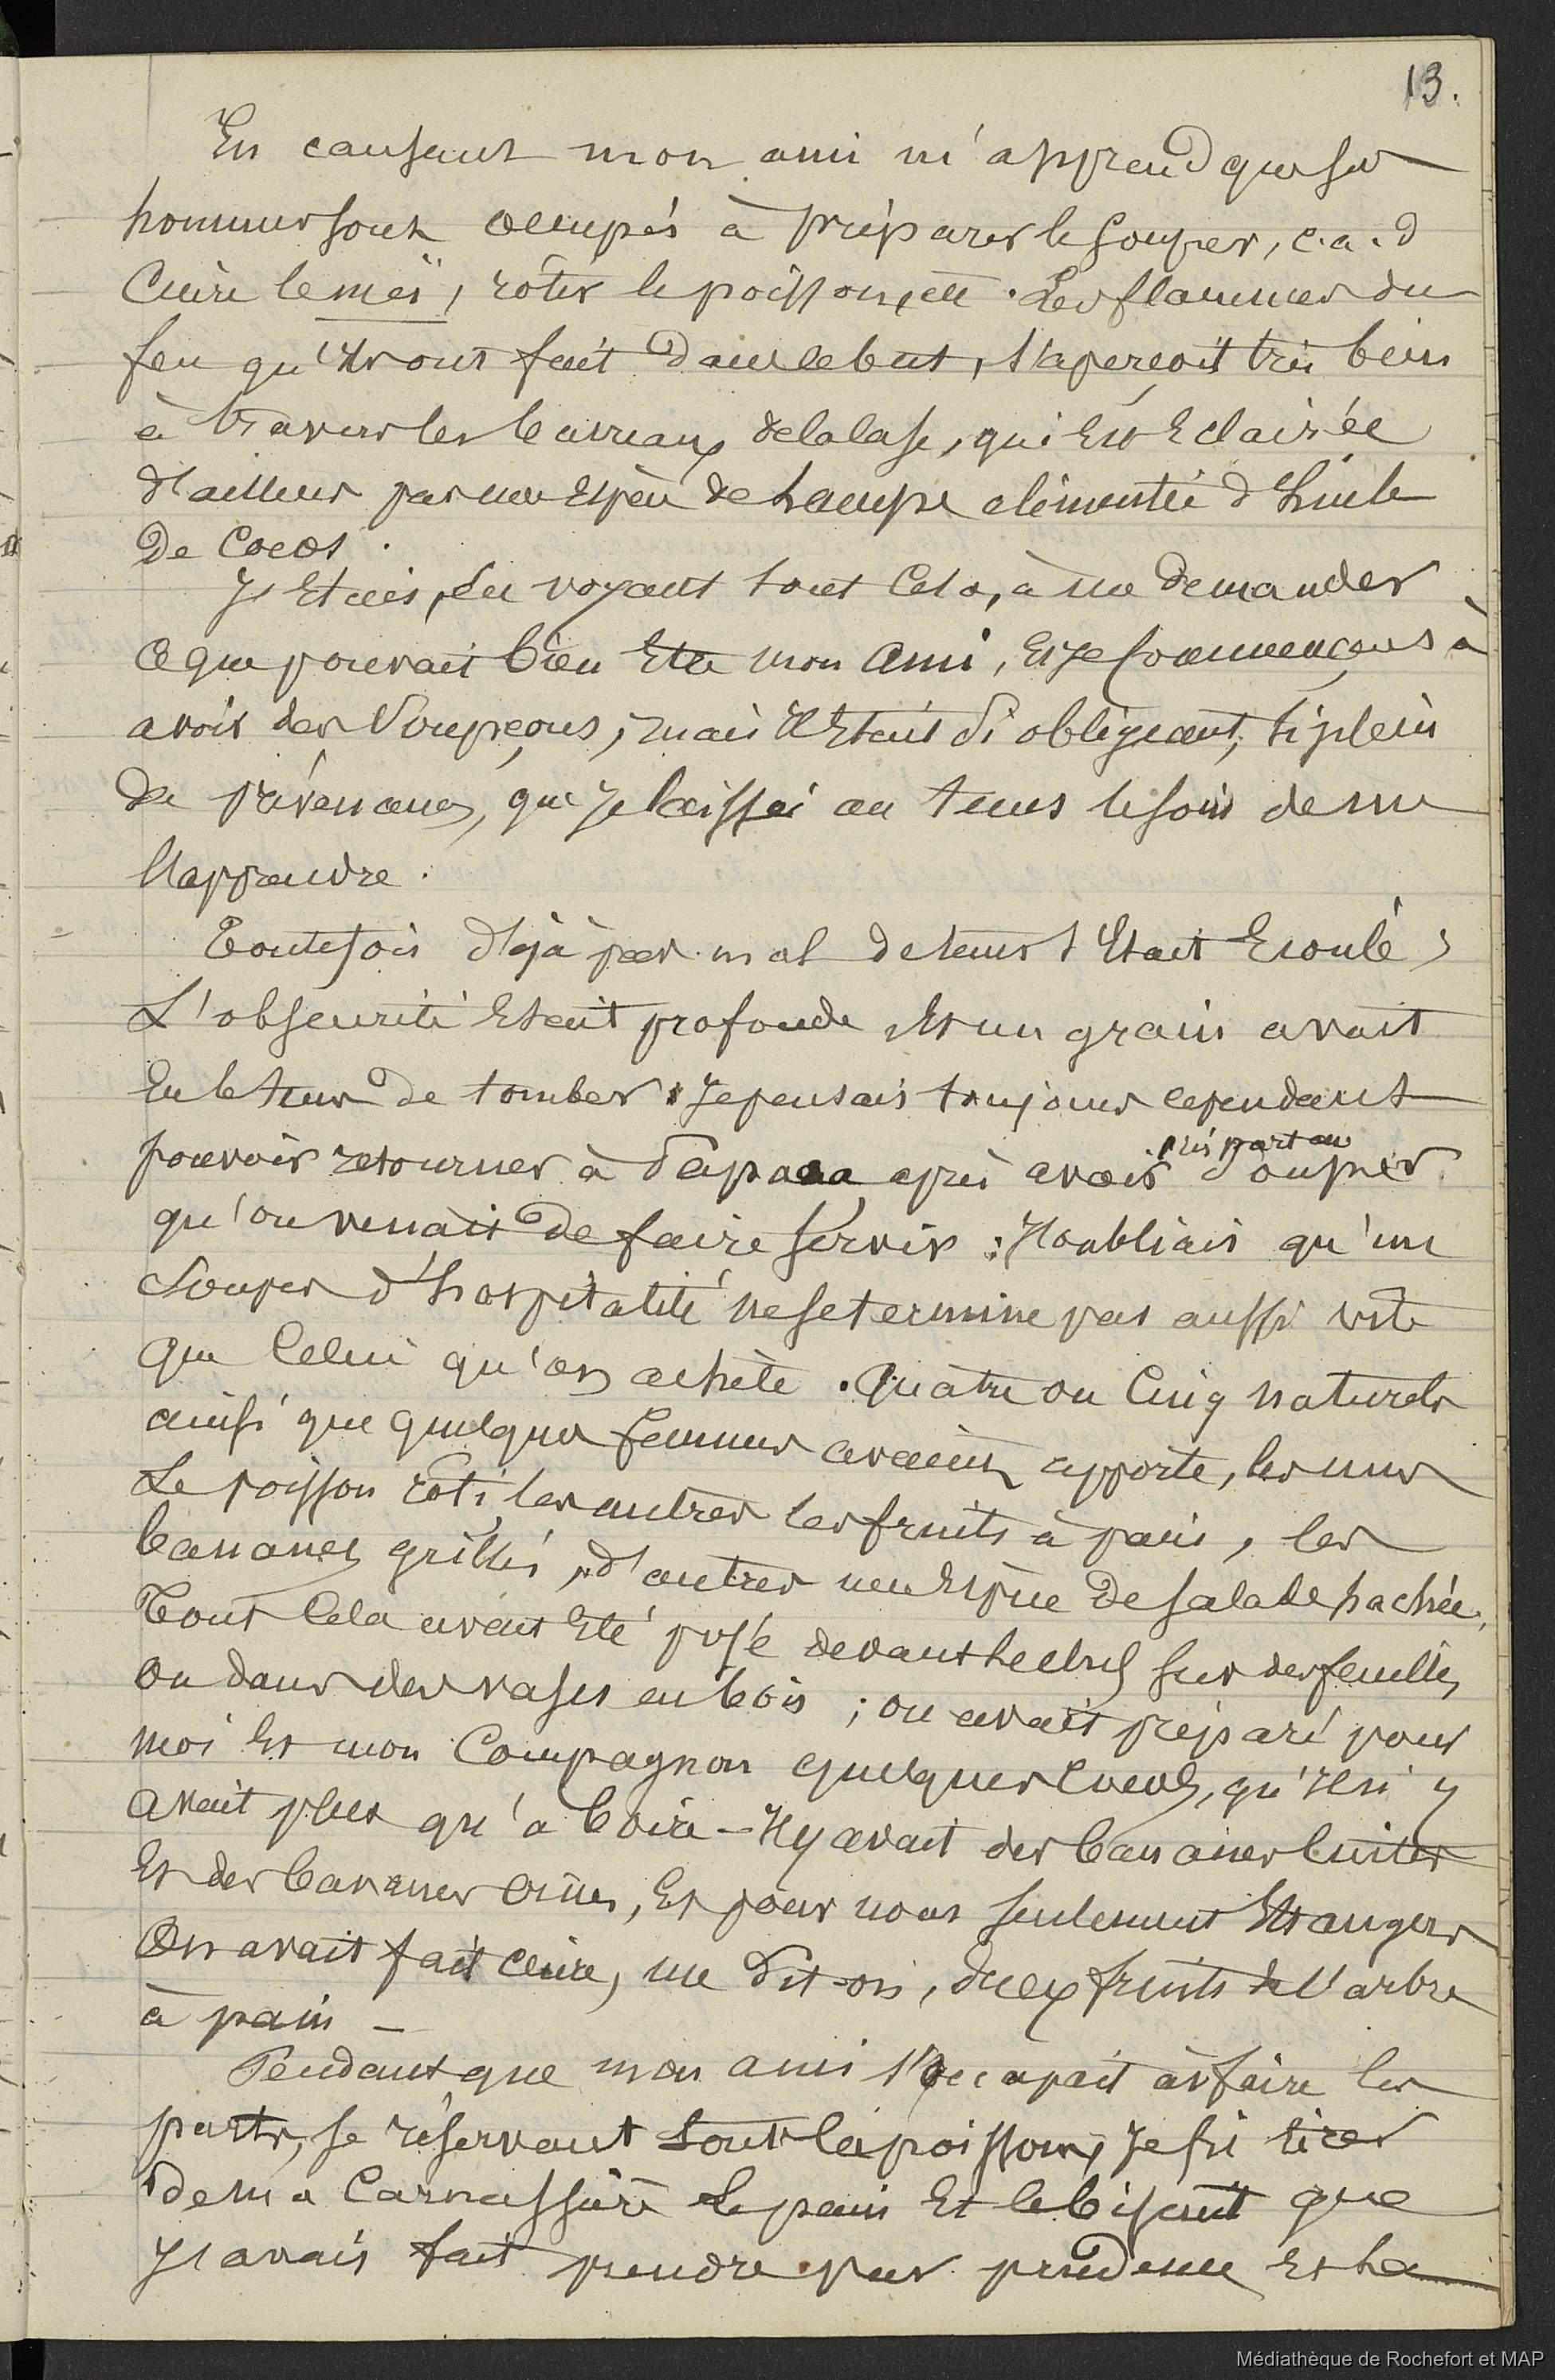 13.
En causant mon ami m'apprend que ses
hommes sont occupés à préparer le souper, c.a.d
Cuire le meï, rôtir le poisson, etc. Les flammes du
feu qu'ils ont fait dans le but, s'aperçoit très bien
à travers les barreaux de la case, qui est Eclairée
d'ailleurs par une espèce de lampe alimentée d'huile
De Cocos.
J'Etais, en voyant tout Cela, à me demander
ce que pouvait bien Etre mon ami, et je commençais à
avoir des Soupçons; mais il Etait si obligeant, si plein
de prévenances, que je laissai au temps le soin de me
l'apprendre.
Toutefois déjà pas mal de temps s'Etait Ecoulé,
L'obscurité Etait profonde et un grain avait
eu le temps de tomber. Je pensais toujours cependant
pouvoir retourner à après avoir pris part au Souper
qu'on venait de faire servir: J'oubliais qu'un
Souper d'hospitalité ne se termine pas aussi vite
que Celui qu'on achète. Quatre ou Cinq naturels
ainsi que quelques femmes avaient apporté, les uns
Le poisson rôti, les autres les fruits à pain, les
bananes grillés, d'autres une Espèce De salade hachée,
Tout Cela avait Eté posé devant le chef sur des feuilles
ou dans des vases en bois; on avait préparé pour
moi et mon Compagnon quelques cocos, qu'il n'y
avait plus qu'a boire – Il y avait des bananes Cuites
Et des bananes Crûes, Et pour nous seulement Etrangers
On avait fait cuire, me dit-on, deux fruits de l'arbre
à pain –
Pendant que mon ami s'occupait à faire les
parts, se réservant tout le poisson, je fis tirer
de ma Carnassière le pain Et le biscuit que
J'avais fait prendre par prudence Et la
Médiathèque de Rochefort et MAP